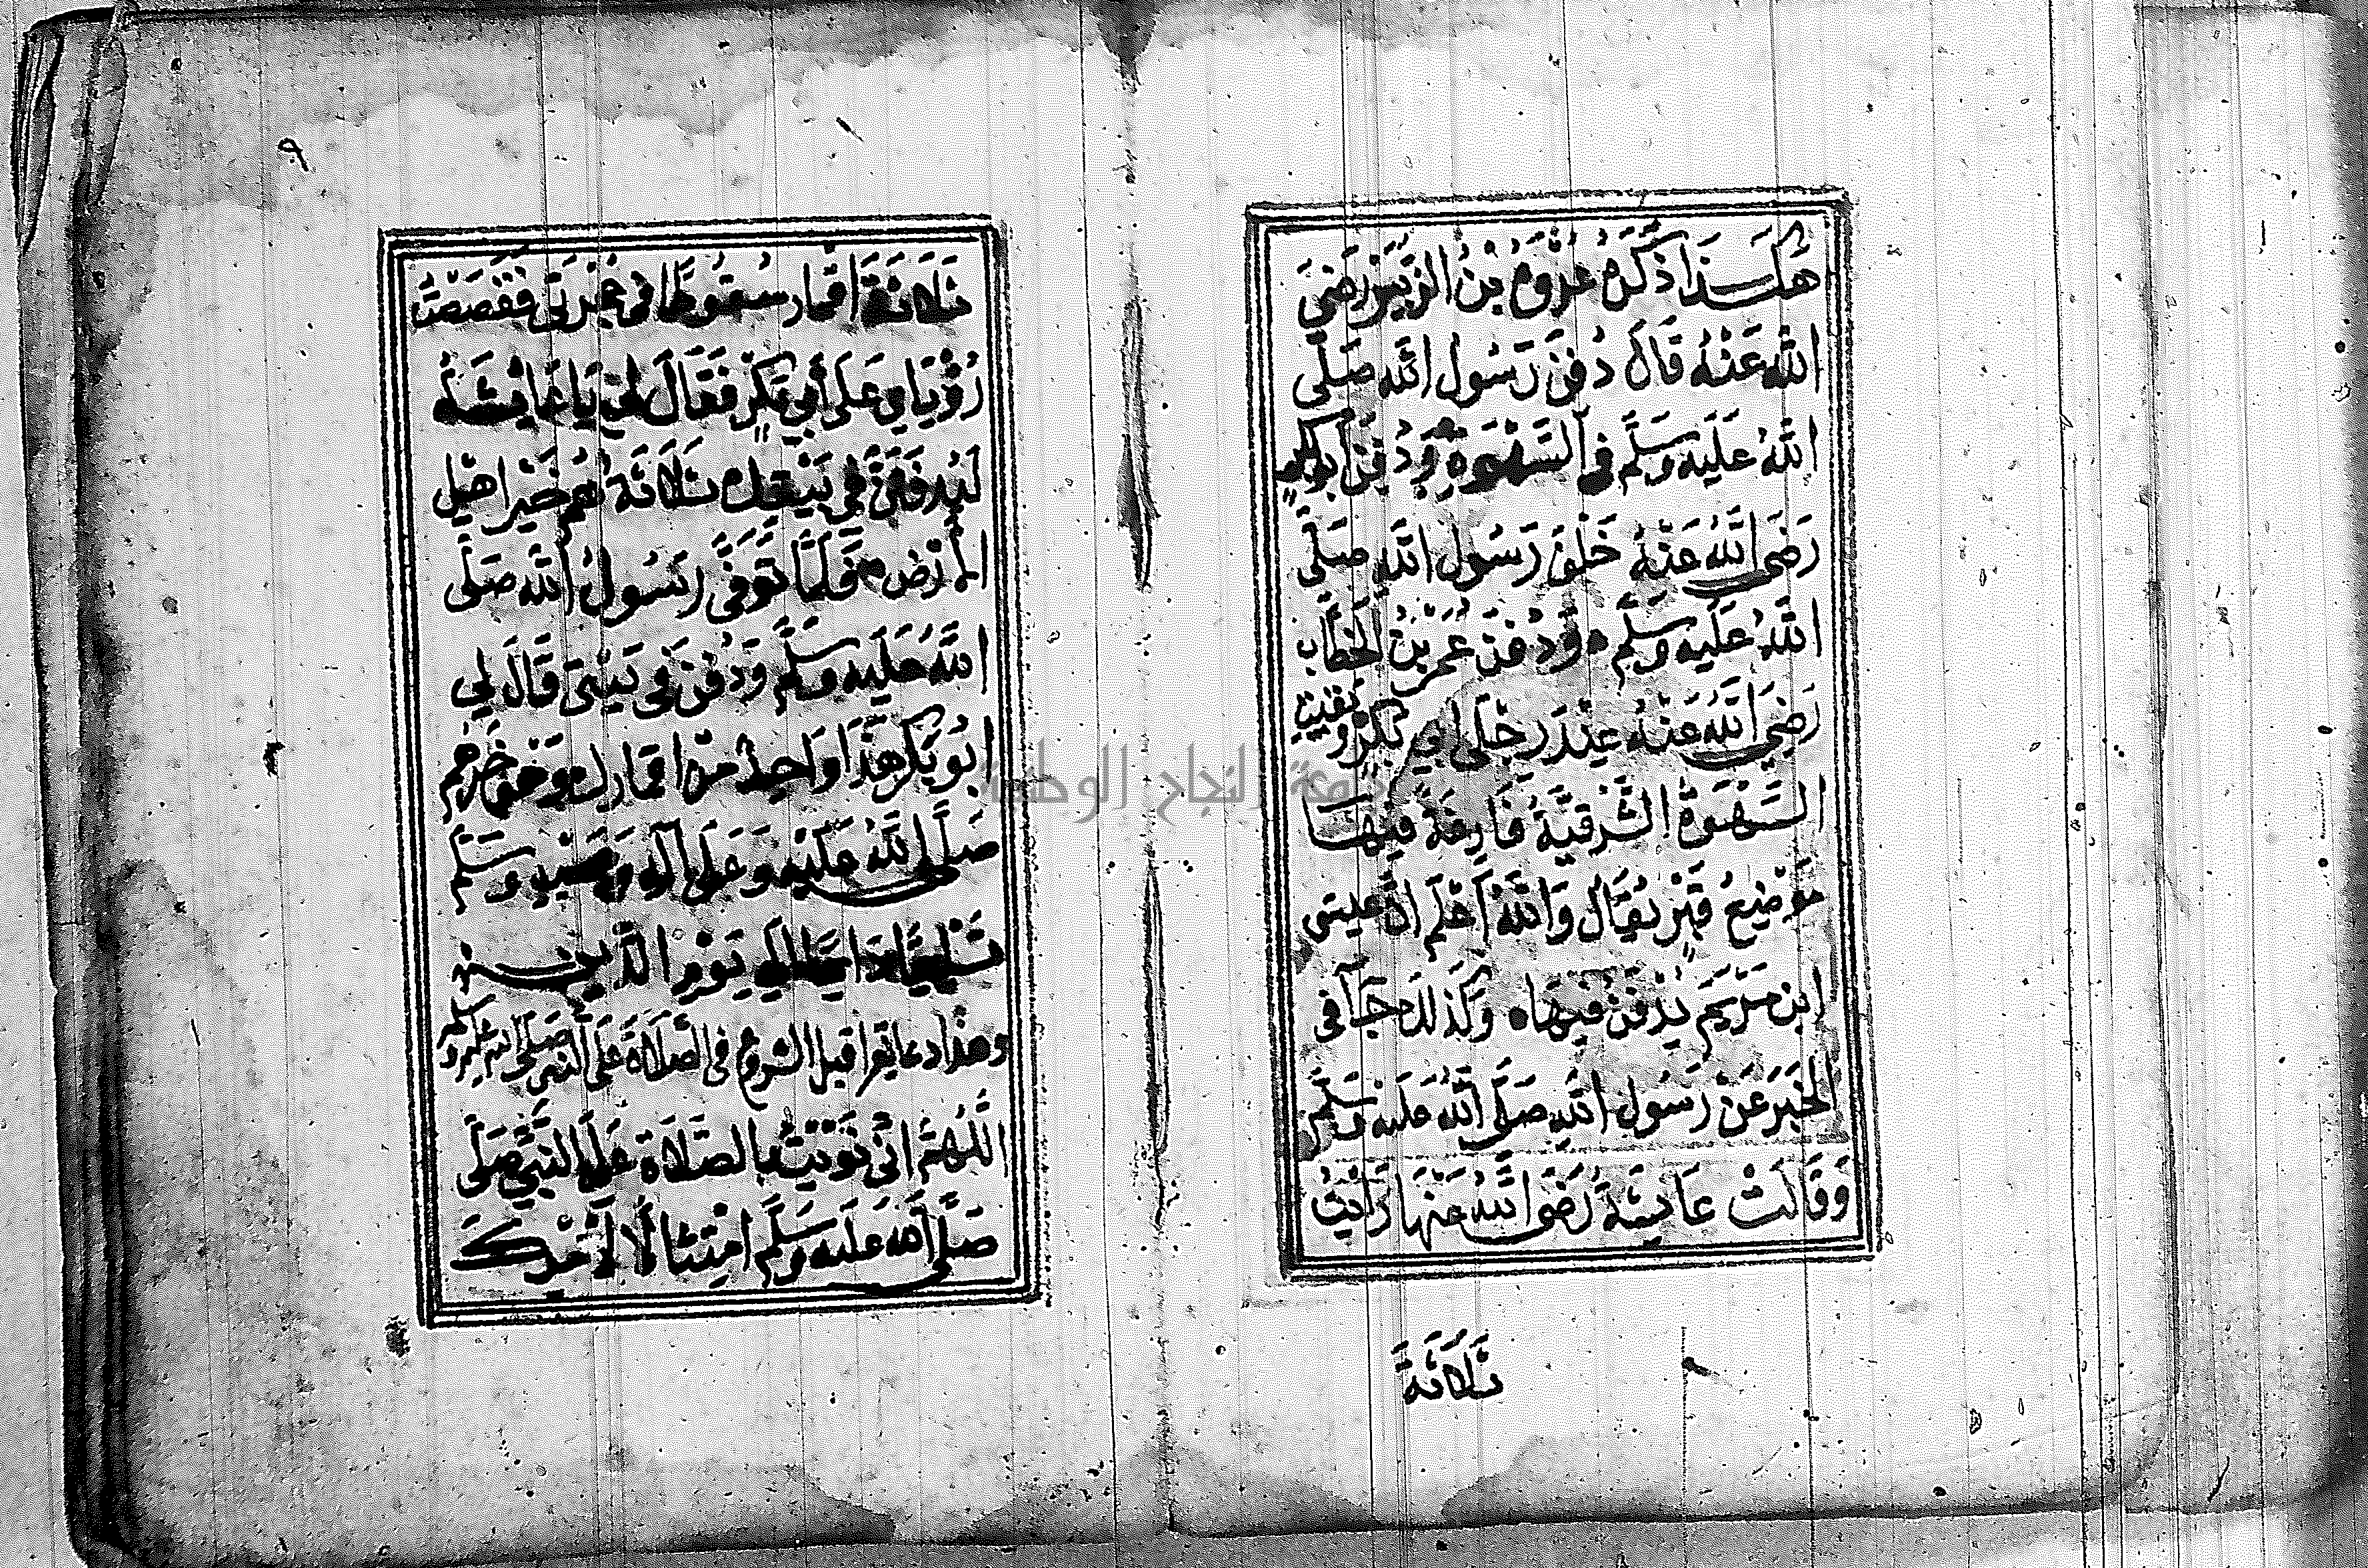 هَكَذَا ذَكَرَهُ عُرْوَةُ بْنُ الزُّبَيْرِ رَضِيَ
اللهُ عَنْهُ قَالَ دُفِنَ رَسُولُ اللهِ صَلَّى
اللهُ عَلَيْهِ وَسَلَّمَ فِي السَّهْوَةِ وَدُفِنَ أَبُو بَكْرٍ
رَضِيَ اللهُ عَنْهُ خَلْفَ رَسُولِ اللهِ صَلَّى
اللهُ عَلَيْهِ وَسَلَّمَ وَدُفِنَ عُمَرُ بْنُ الْخَطَّابِ
رَضِيَ اللهُ عَنْهُ عِنْدَ رِجْلَيْ أَبِي بَكْرٍ وَبَقِيَتِ
السَّهْوَةُ الشَّرْقِيَّةُ فَارِغَةً فِيهَا
مَوْضِعُ قَبْرٍ يُقَالُ وَاللهُ أَعْلَمُ أَنَّ عِيسَى
ابْنَ مَرْيَمَ يُدْفَنُ فِيهَا وَكَذَلِكَ جَآ فِي
الْخَبَرِ عَنْ رَسُولِ اللهِ صَلَّى اللهُ عَلَيْهِ وَسَلَّمَ
وَقَالَتْ عَائِشَةُ رَضِيَ اللهُ عَنْهَا رَأَيْتُ
ثَلَاثَةَ
٩
ثَلَاثَةَ أَقْمَارٍ سُقُوطًا فِي حُجْرَتِي فَقَصَصْتُ
رُؤْيَايَ عَلَى أَبِي بَكْرٍ فَقَالَ لِي يَا عَائِشَةُ
لَيُدْفَنَنَّ فِي بَيْتِكِ ثَلَاثَةٌ هُمْ خَيْرُ أَهْلِ
الْأَرْضِ فَلَمَّا تُوُفِّيَ رَسُولُ اللهِ صَلَّى
اللهُ عَلَيْهِ وَسَلَّمَ وَدُفِنَ فِي بَيْتِي قَالَ لِي
أَبُو بَكْرٍ هَذَا وَاحِدٌ مِنْ أَقْمَارِكِ وَهُوَ خَيْرُهُمْ
صَلَّى اللهُ عَلَيْهِ وَعَلَى آلِهِ وَصَحْبِهِ وَسَلَّمَ
تَسْلِيمًا دَائِمًا إِلَى يَوْمِ الدِّينِ
وهذا دعا يقرا قبل الشروع في الصلاة على النبي صلى الله عليه وسلم
اللَّهُمَّ إِنِّي نَوَيْتُ بِالصَّلَاةِ عَلَى النَّبِيِّ صَلَّى
صَلَّى اللهُ عَلَيْهِ وَسَلَّمَ امْتِثَالًا لِأَمْرِكَ
جامعة النجاح الوطنية